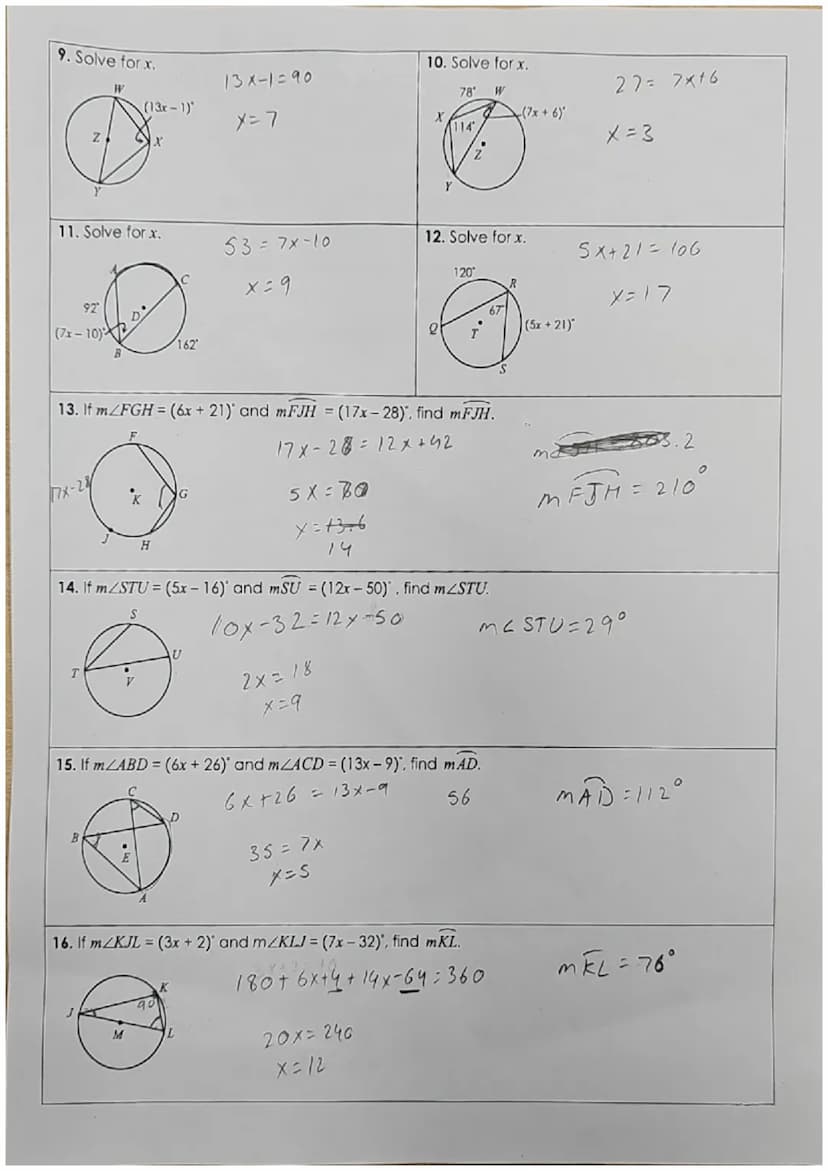 9. Solve for x.
13x-1=90
x=7
W
(13x – 1)°
Z
X
Y
10. Solve for x.
27= 7x+6
x=3
78° W
X
(7x + 6)°
114°
Z
Y
11. Solve for x.
53=7x-10
x=9
A
C
92°
D
(7x – 10)°
B
162°
12. Solve for x.
5x+21=106
x=17
120°
R
67°
Q
T
(5x + 21)°
S
13. If m∠FGH = (6x + 21)° and mFJH = (17x – 28)°, find mFJH.
F
17x-28
K
G
J
H
17x-28=12x+42
5x=70
x=13.6
14
.2
mFJH = 210°
14. If m∠STU = (5x – 16)° and mSU = (12x – 50)°, find m∠STU.
S
U
T
V
10x-32=12x-50
2x=18
x=9
m∠STU=29°
15. If m∠ABD = (6x + 26)° and m∠ACD = (13x – 9)°, find mAD.
C
D
B
E
A
6x+26 = 13x-9
56
35=7x
x=5
mAD=112°
16. If m∠KJL = (3x + 2)° and m∠KLJ = (7x – 32)°, find mKL.
K
90
J
L
M
180+6x+4+14x-64=360
20x=240
x=12
mKL=76°